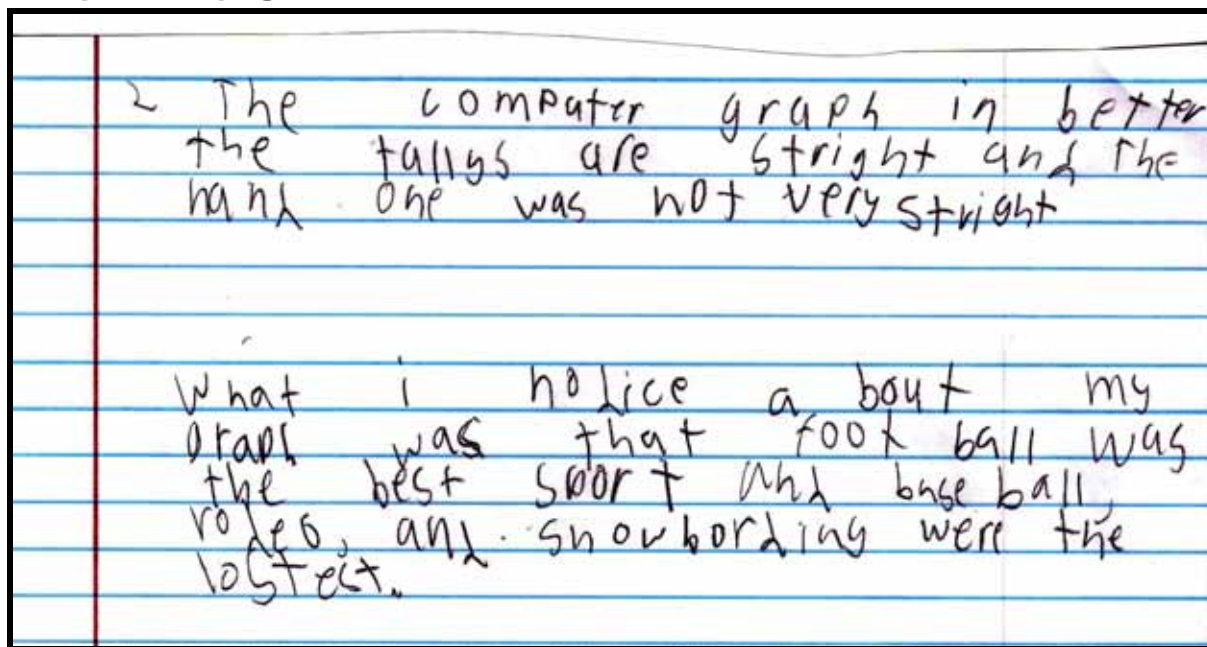 2 The computer graph in better
the tallys are stright and the
hand one was not very stright
What i notice a bout my
graph was that foot ball was
the best sport and base ball,
rodeo, and snowbording were the
lostest.